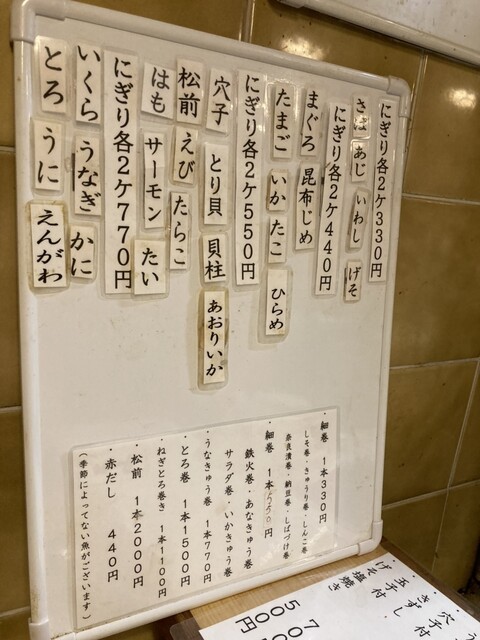 にぎり各2ケ330円
さば あじ いわし げそ
にぎり各2ケ440円
まぐろ 昆布じめ
たまご いか たこ ひらめ
にぎり各2ケ550円
穴子 とり貝 貝柱 あおりいか
松前 えび たらこ
はも サーモン たい
にぎり各2ケ770円
いくら うなぎ かに
とろ うに えんがわ
・細巻 1本330円
しそ巻・きゅうり巻・しんこ巻
奈良漬巻・納豆巻・しばづけ巻
・細巻 1本550円
鉄火巻・あなきゅう巻
サラダ巻・いかきゅう巻
・うなきゅう巻 1本770円
・とろ巻 1本1500円
・ねぎとろ巻き 1本1100円
・松前 1本2000円
・赤だし 440円
(季節によってない魚がございます)
・穴子
・きずし
・五子村
げそ塩焼き